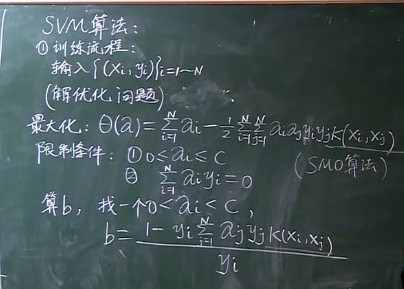 SVM算法:
①训练流程:
输入{(xi,yi)}i=1~N
(解优化问题)
最大化: Θ(a)=∑_{i=1}^{N} ai-1/2∑_{i=1}^{N}∑_{j=1}^{N} aiajyiyjK(xi,xj)
限制条件: ①0≤ai≤C (SMO算法)
② ∑_{i=1}^{N} aiyi=0
算b, 找一个0<ai<C,
b=(1-yi∑_{i=1}^{N} ajyjK(xi,xj))/yi